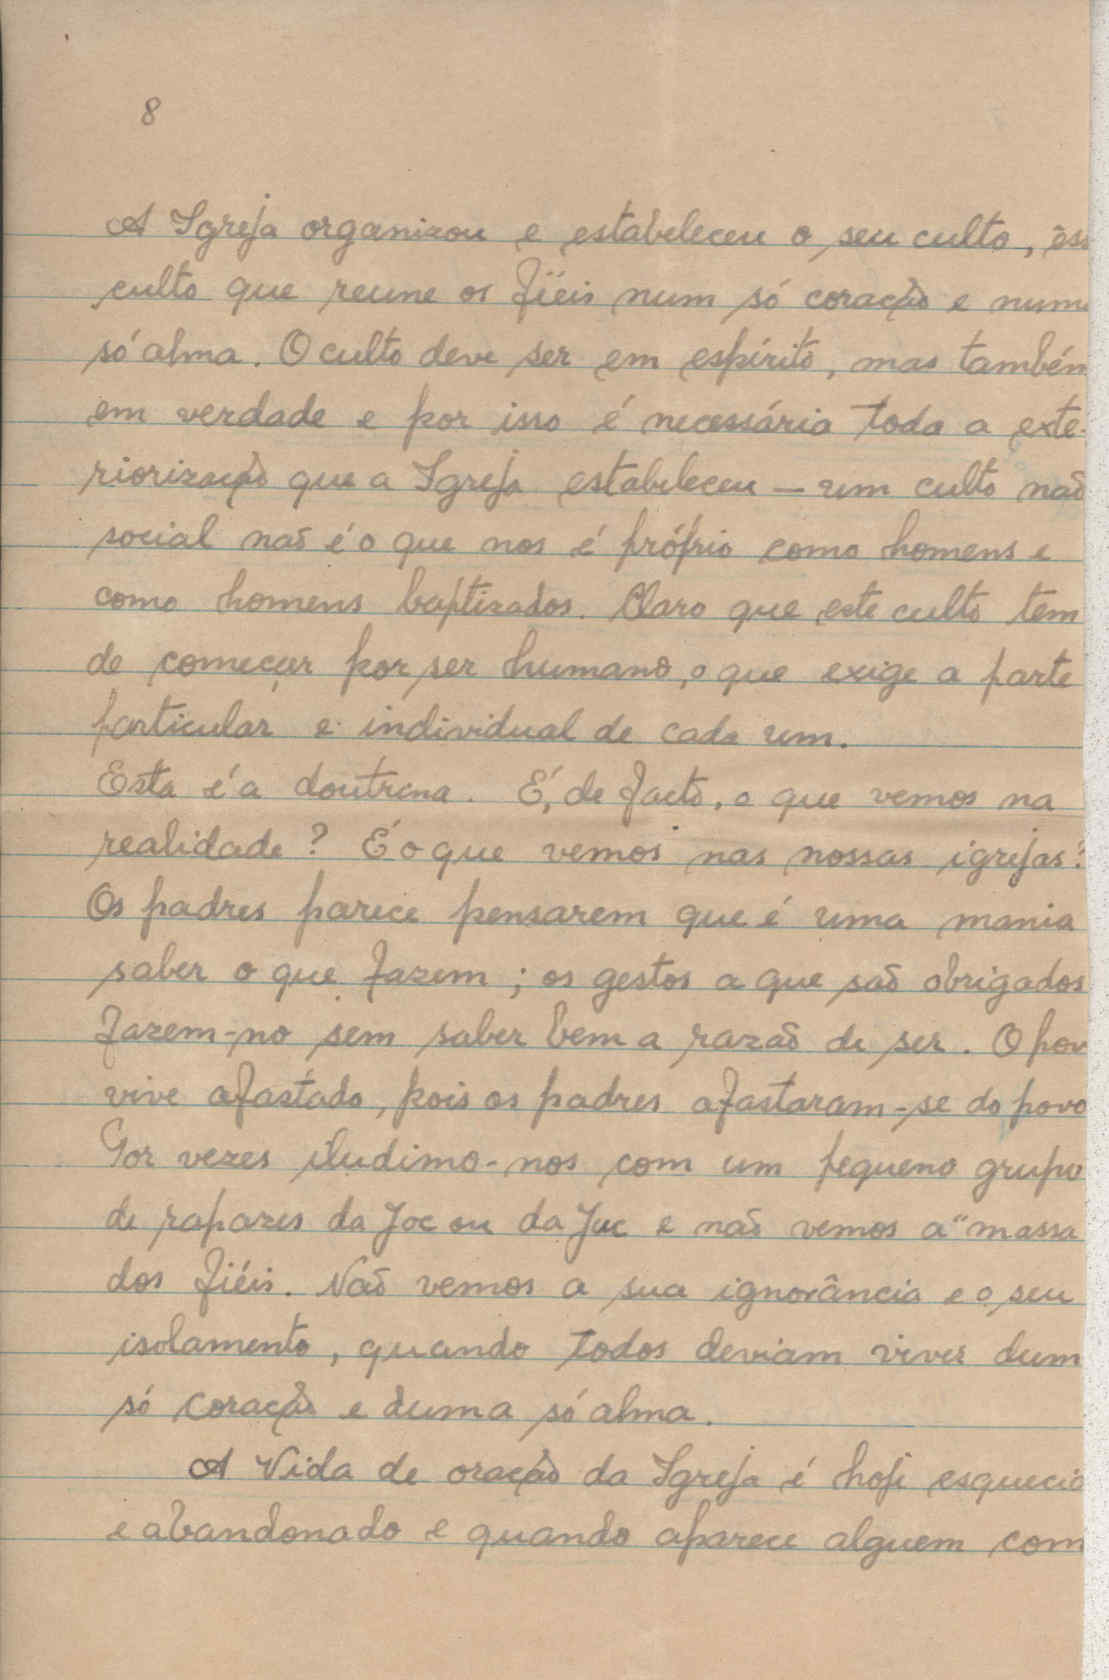 8
A Igreja organizou e estabeleceu o seu culto, êss
culto que reune os fiéis num só coração e numa
só alma. O culto deve ser em espírito, mas também
em verdade e por isso é necessária toda a exte-
riorização que a Igreja estabeleceu — um culto não
social não é o que nos é próprio como homens e
como homens baptizados. Claro que este culto tem
de começar por ser humano, o que exige a parte
particular e individual de cada um.
Esta é a doutrina. É, de facto, o que vemos na
realidade? É o que vemos nas nossas igrejas?
Os padres parece pensarem que é uma mania
saber o que fazem; os gestos a que são obrigados
fazem-no sem saber bem a razão de ser. O pov
vive afastado, pois os padres afastaram-se do povo
Por vezes iludimo-nos com um pequeno grupo
de rapazes da Joc ou da Juc e não vemos a "massa
dos fiéis. Não vemos a sua ignorância e o seu
isolamento, quando todos deviam viver dum
só coração e duma só alma.
A Vida de oração da Igreja é hoje esquecid
e abandonado e quando aparece alguem com